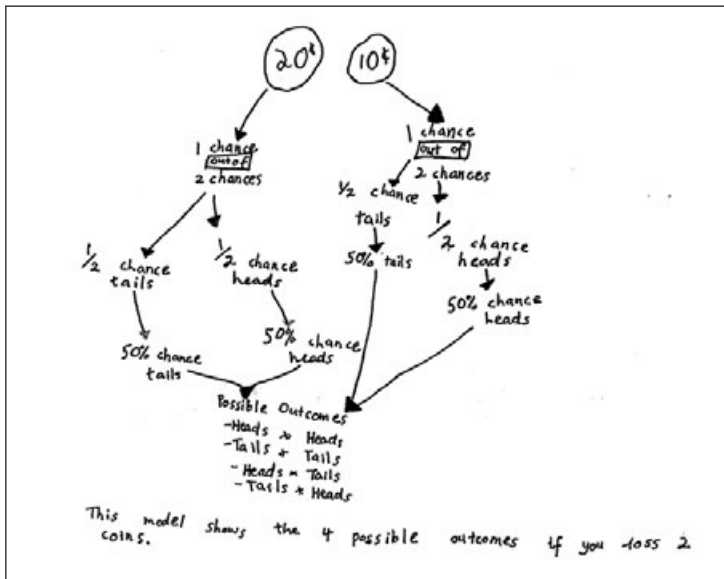 20¢
10¢
1 chance
out of
2 chances
1 chance
out of
2 chances
1/2 chance
tails
1/2 chance
heads
1/2 chance
tails
1/2 chance
heads
50% chance
tails
50% chance
heads
50% tails
50% chance
heads
Possible Outcomes
-Heads + Heads
-Tails + Tails
-Heads + Tails
-Tails + Heads
This model shows the 4 possible outcomes if you toss 2
coins.